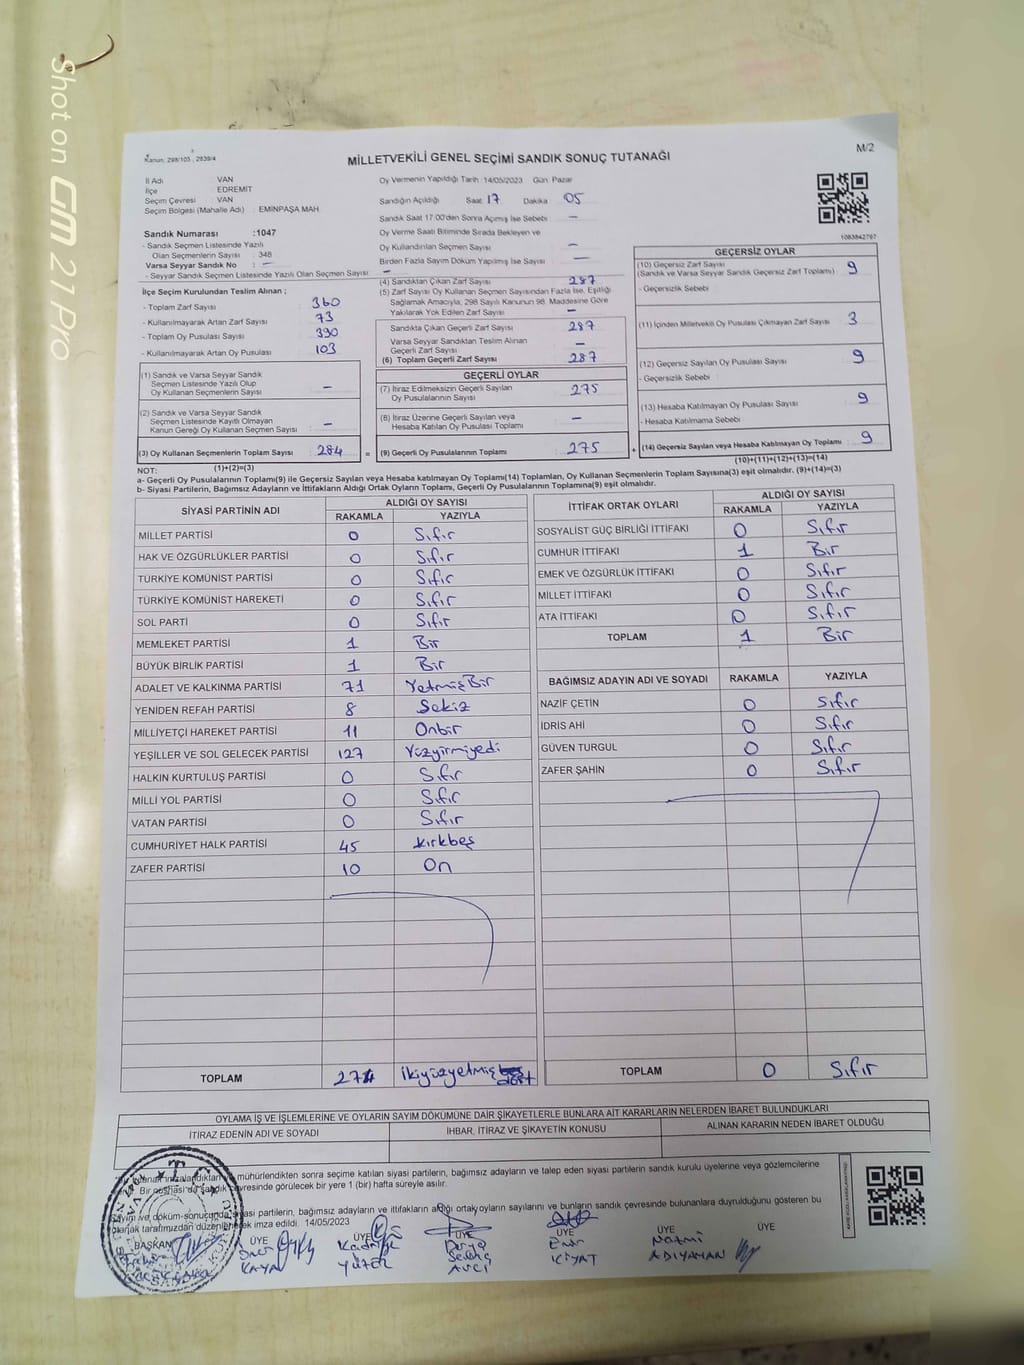 Shot on GM 21 Pro
Kanun: 298/103 , 2839/4
MİLLETVEKİLİ GENEL SEÇİMİ SANDIK SONUÇ TUTANAĞI
M/2
İl Adı VAN
İlçe EDREMİT
Seçim Çevresi VAN
Seçim Bölgesi (Mahalle Adı) : EMİNPAŞA MAH
Sandık Numarası :1047
- Sandık Seçmen Listesinde Yazılı
Olan Seçmenlerin Sayısı : 348
Varsa Seyyar Sandık No : –
- Seyyar Sandık Seçmen Listesinde Yazılı Olan Seçmen Sayısı : –
Oy Vermenin Yapıldığı Tarih :14/05/2023 Gün: Pazar
Sandığın Açıldığı Saat 17 Dakika 05
Sandık Saat 17:00'den Sonra Açımış İse Sebebi –
Oy Verme Saati Bitiminde Sırada Bekleyen ve
Oy Kullandırılan Seçmen Sayısı –
Birden Fazla Sayım Döküm Yapılmış İse Sayısı –
1083842767
İlçe Seçim Kurulundan Teslim Alınan ;
- Toplam Zarf Sayısı : 360
- Kullanılmayarak Artan Zarf Sayısı : 73
- Toplam Oy Pusulası Sayısı : 390
- Kullanılmayarak Artan Oy Pusulası : 103
(1) Sandık ve Varsa Seyyar Sandık
Seçmen Listesinde Yazılı Olup
Oy Kullanan Seçmenlerin Sayısı : –
(2) Sandık ve Varsa Seyyar Sandık
Seçmen Listesinde Kayıtlı Olmayan
Kanun Gereği Oy Kullanan Seçmen Sayısı : –
(3) Oy Kullanan Seçmenlerin Toplam Sayısı : 284 =
(1)+(2)=(3)
(4) Sandıktan Çıkan Zarf Sayısı 287
(5) Zarf Sayısı Oy Kullanan Seçmen Sayısından Fazla İse, Eşitliği
Sağlamak Amacıyla, 298 Sayılı Kanunun 98. Maddesine Göre
Yakılarak Yok Edilen Zarf Sayısı : –
Sandıkta Çıkan Geçerli Zarf Sayısı 287
Varsa Seyyar Sandıktan Teslim Alınan
Geçerli Zarf Sayısı –
(6) Toplam Geçerli Zarf Sayısı 287
GEÇERLİ OYLAR
(7) İtiraz Edilmeksizin Geçerli Sayılan
Oy Pusulalarının Sayısı : 275
(8) İtiraz Üzerine Geçerli Sayılan veya
Hesaba Katılan Oy Pusulası Toplamı : –
(9) Geçerli Oy Pusulalarının Toplamı : 275 +
GEÇERSİZ OYLAR
(10) Geçersiz Zarf Sayısı
(Sandık ve Varsa Seyyar Sandık Geçersiz Zarf Toplamı) : 9
- Geçersizlik Sebebi :
(11) İçinden Milletvekili Oy Pusulası Çıkmayan Zarf Sayısı : 3
(12) Geçersiz Sayılan Oy Pusulası Sayısı : 9
- Geçersizlik Sebebi :
(13) Hesaba Katılmayan Oy Pusulası Sayısı : 9
- Hesaba Katılmama Sebebi :
(14) Geçersiz Sayılan veya Hesaba Katılmayan Oy Toplamı : 9
(10)+(11)+(12)+(13)=(14)
NOT:
a- Geçerli Oy Pusulalarının Toplamı(9) ile Geçersiz Sayılan veya Hesaba katılmayan Oy Toplamı(14) Toplamları, Oy Kullanan Seçmenlerin Toplam Sayısına(3) eşit olmalıdır. (9)+(14)=(3)
b- Siyasi Partilerin, Bağımsız Adayların ve İttifakların Aldığı Ortak Oyların Toplamı, Geçerli Oy Pusulalarının Toplamına(9) eşit olmalıdır.
SİYASİ PARTİNİN ADI ALDIĞI OY SAYISI
RAKAMLA YAZIYLA
MİLLET PARTİSİ 0 Sıfır
HAK VE ÖZGÜRLÜKLER PARTİSİ 0 Sıfır
TÜRKİYE KOMÜNİST PARTİSİ 0 Sıfır
TÜRKİYE KOMÜNİST HAREKETİ 0 Sıfır
SOL PARTİ 0 Sıfır
MEMLEKET PARTİSİ 1 Bir
BÜYÜK BİRLİK PARTİSİ 1 Bir
ADALET VE KALKINMA PARTİSİ 71 YetmişBir
YENİDEN REFAH PARTİSİ 8 Sekiz
MİLLİYETÇİ HAREKET PARTİSİ 11 Onbir
YEŞİLLER VE SOL GELECEK PARTİSİ 127 Yüzyirmiyedi
HALKIN KURTULUŞ PARTİSİ 0 Sıfır
MİLLİ YOL PARTİSİ 0 Sıfır
VATAN PARTİSİ 0 Sıfır
CUMHURİYET HALK PARTİSİ 45 kırkbeş
ZAFER PARTİSİ 10 On
TOPLAM 274 ikiyüzyetmiş dört
İTTİFAK ORTAK OYLARI ALDIĞI OY SAYISI
RAKAMLA YAZIYLA
SOSYALİST GÜÇ BİRLİĞİ İTTİFAKI 0 Sıfır
CUMHUR İTTİFAKI 1 Bir
EMEK VE ÖZGÜRLÜK İTTİFAKI 0 Sıfır
MİLLET İTTİFAKI 0 Sıfır
ATA İTTİFAKI 0 Sıfır
TOPLAM 1 Bir
BAĞIMSIZ ADAYIN ADI VE SOYADI RAKAMLA YAZIYLA
NAZİF ÇETİN 0 Sıfır
İDRİS AHİ 0 Sıfır
GÜVEN TURGUL 0 Sıfır
ZAFER ŞAHİN 0 Sıfır
TOPLAM 0 Sıfır
OYLAMA İŞ VE İŞLEMLERİNE VE OYLARIN SAYIM DÖKÜMÜNE DAİR ŞİKAYETLERLE BUNLARA AİT KARARLARIN NELERDEN İBARET BULUNDUKLARI
İTİRAZ EDENİN ADI VE SOYADI İHBAR, İTİRAZ VE ŞİKAYETİN KONUSU ALINAN KARARIN NEDEN İBARET OLDUĞU
mühürlendikten sonra seçime katılan siyasi partilerin, bağımsız adayların ve talep eden siyasi partilerin sandık kurulu üyelerine veya gözlemcilerine
Bir nüshası da sandık çevresinde görülecek bir yere 1 (bir) hafta süreyle asılır.
Sayım ve döküm sonucunda siyasi partilerin, bağımsız adayların ve ittifakların aldığı ortak oyların sayılarını ve bunların sandık çevresinde bulunanlara duyrulduğunu gösteren bu
tarafımızdan düzenlenerek imza edildi. 14/05/2023
BAŞKAN ÜYE ÜYE ÜYE ÜYE ÜYE ÜYE
KAYA Kadriye YÜZER Derya AVCI Emir KIYAT Nazmi ADIYAMAN